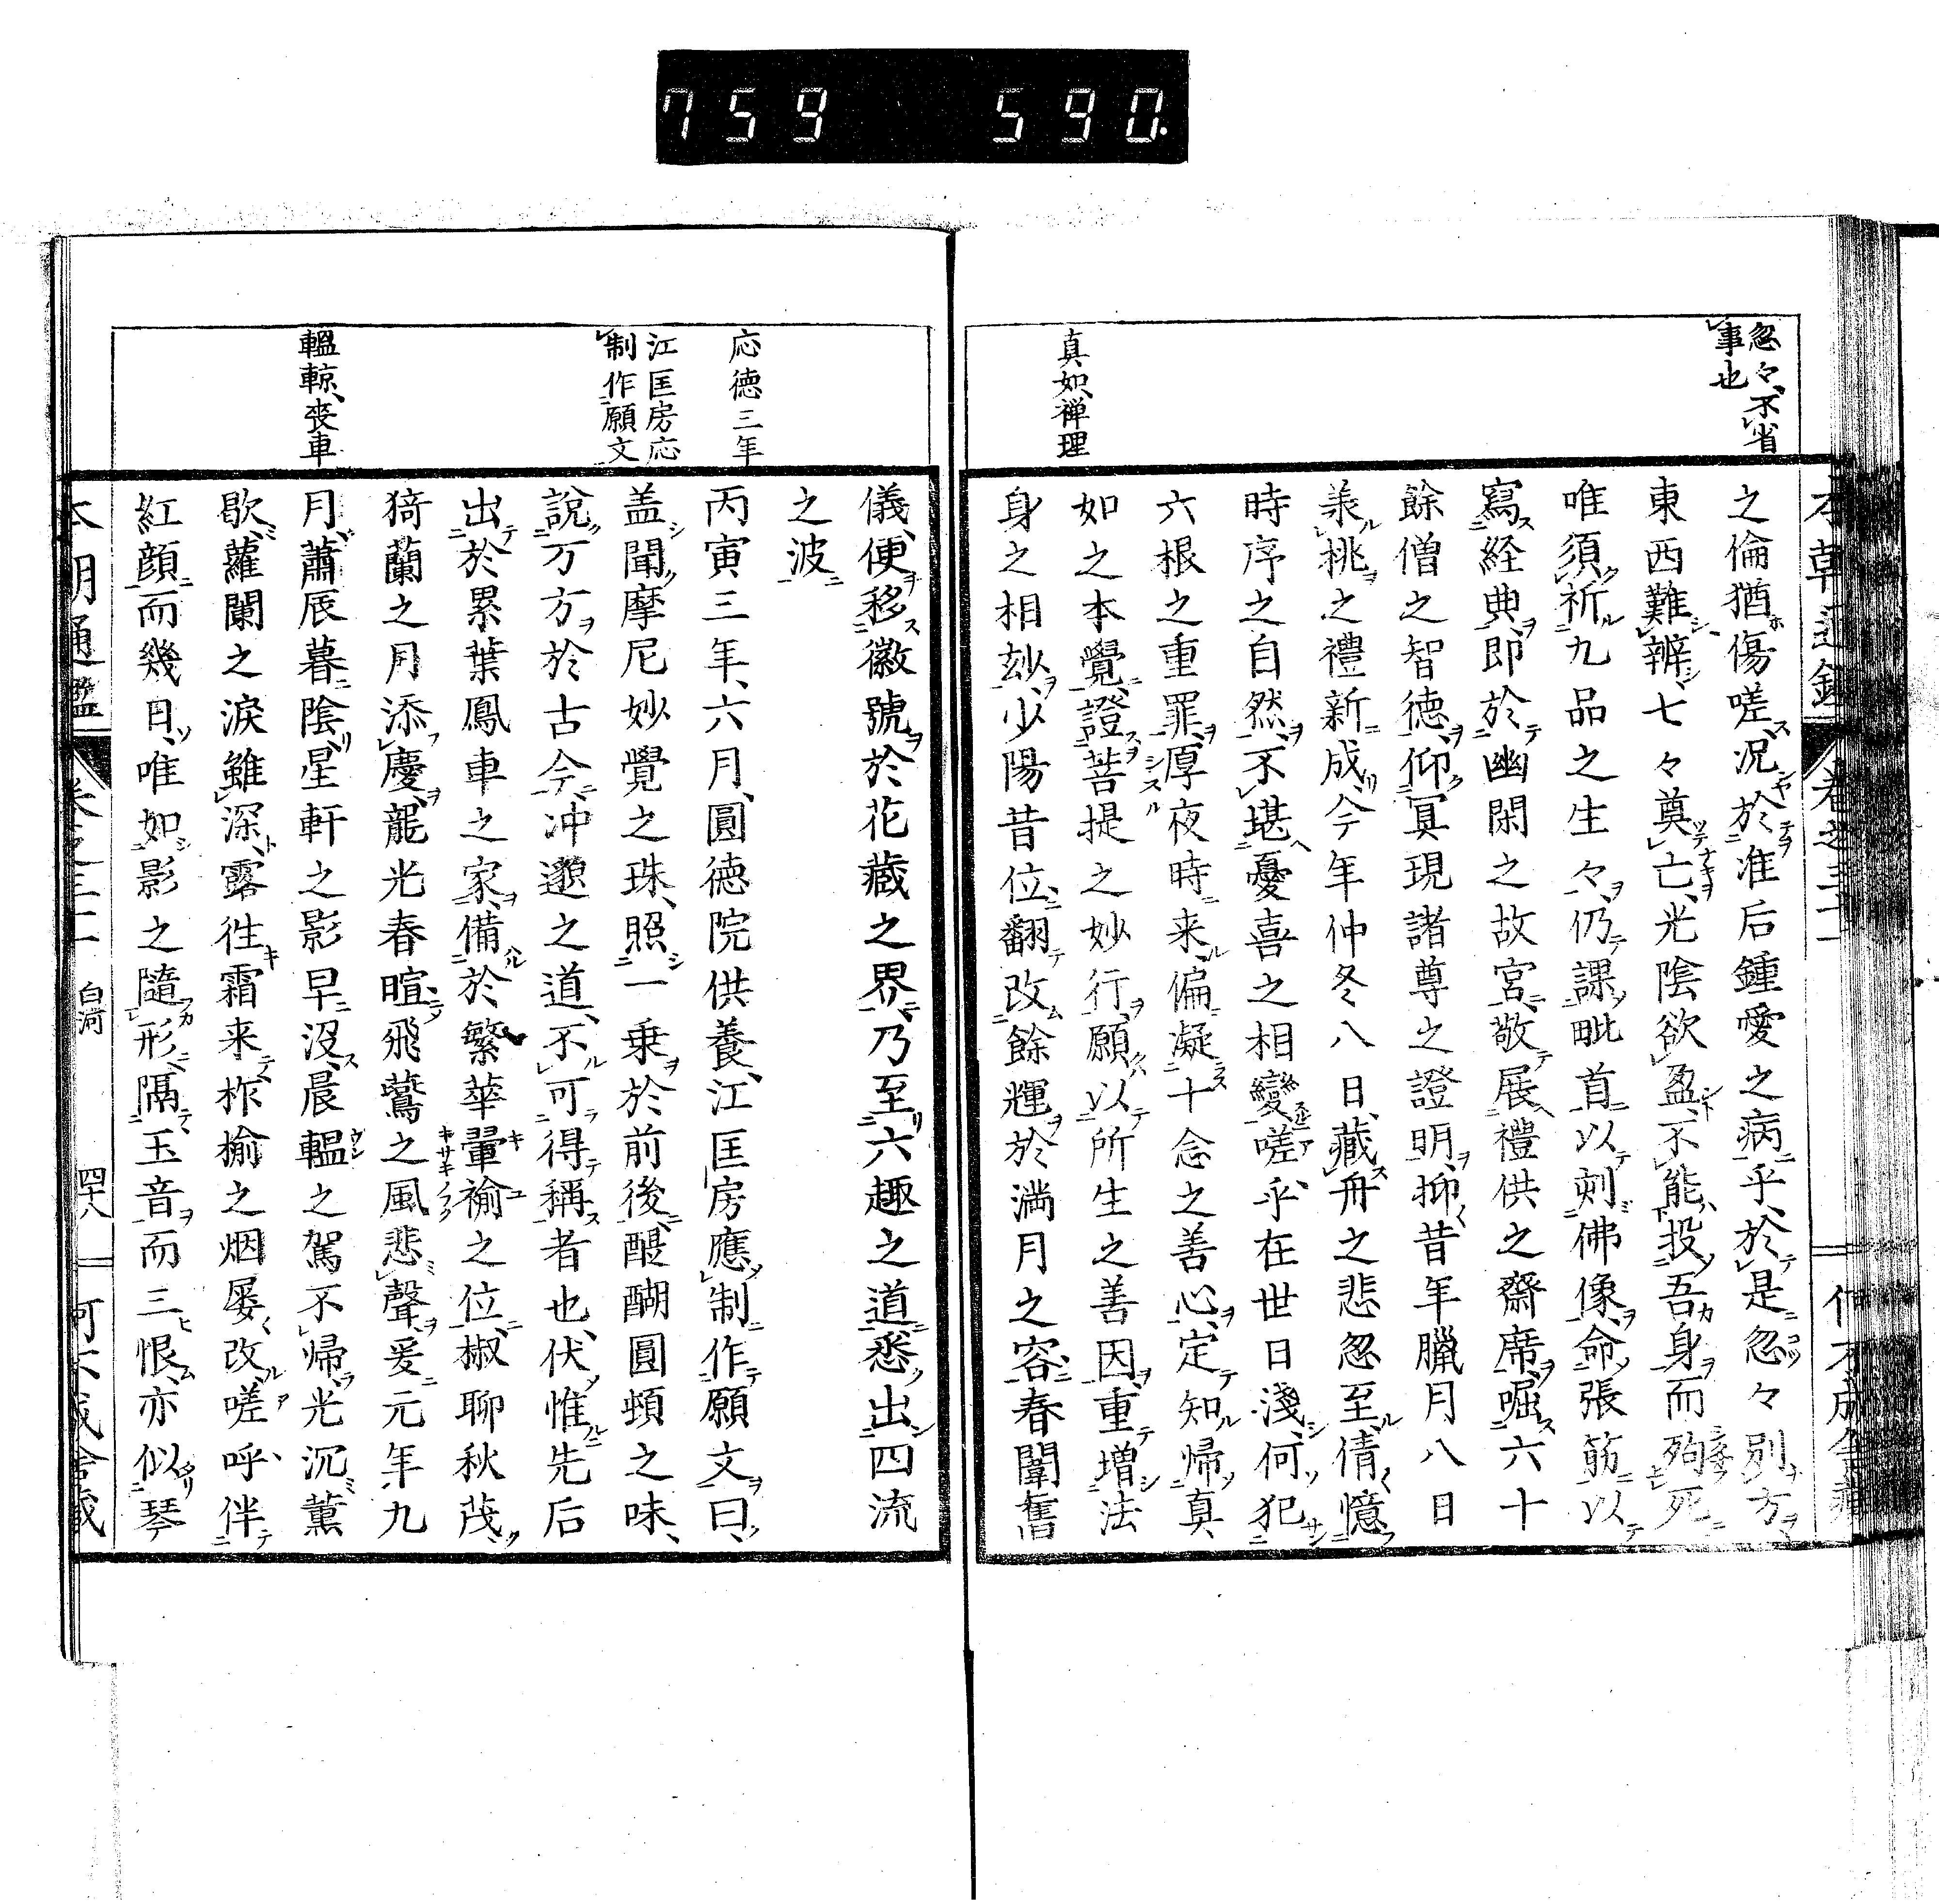 759 590.
忽々、不省
事也
真如、禅理
之倫猶傷嗟况於准后鍾愛之病乎、於是忽々別方
東西難辨、七々奠亡、光陰欲盈、不能投吾身而殉死
唯須祈九品之生々、仍課毗首以刻佛像、命張筋以
寫経典、即於幽閑之故宮、敬展禮供之齋席、啒六十
餘僧之智德、仰冥現諸尊之證明、抑昔年臘月八日
羕桃之禮新成、今年仲冬八日、藏舟之悲忽至、倩憶
時序之自然、不堪憂喜之相變、嗟乎在世日淺、何犯
六根之重罪、厚夜時来、偏凝十念之善心、定知歸真
如之本覺、證菩提之妙行、願以所生之善因、重增法
身之相玅、少陽昔位、翻改餘輝於満月之容、春闈舊
応徳三年
江匡房応
制作願文
轀輬、喪車
儀、便移徽號於花藏之界、乃至六趣之道、悉出四流
之波
丙寅三年、六月、圓德院供養、江匡房應制作願文曰、
盖聞摩尼妙覺之珠、照一乗於前後、醍醐圓頓之味、
說万方於古今、冲邈之道、不可得稱者也、伏惟先后
出於累葉鳳車之家、備於繁華翬褕之位、椒聊秋茂、
猗蘭之月添慶、龍光春暄、飛鷰之風悲聲、爰元年九
月、蕭辰暮陰、星軒之影早沒、晨轀之駕不歸、光沉薰
歇、蘿闌之淚雖深、露往霜来、柞揄之烟屡改、嗟呼、伴
紅顔而幾日、唯如影之隨形、隔玉音而三恨、亦似琴
白河
四十八